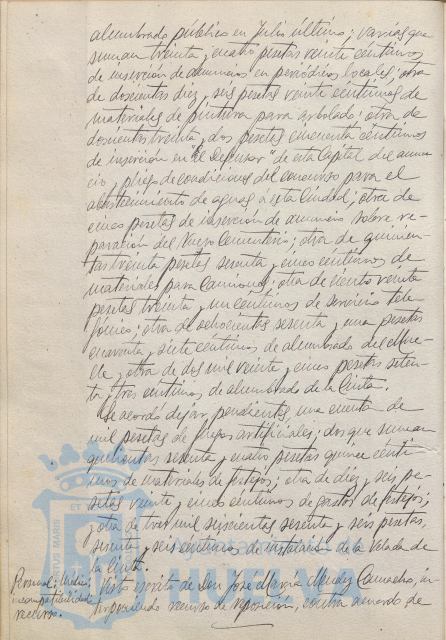 alumbrado público en Julio último; varias que
suman treinta y cuatro pesetas veinte céntimos
de inserción de anuncios en periódicos locales; otra
de doscientas diez y seis pesetas veinte céntimos de
materiales de pintura para arbolado; otra de
doscientas treinta y dos pesetas cincuenta céntimos
de inserción en "El Defensor" de esta Capital del anun
cio y pliego de condiciones del concurso para el
abastecimiento de aguas á esta Ciudad; otra de
cinco pesetas de inserción de anuncio sobre re-
paración del Viejo Cementerio; otra de quinien-
tas treinta pesetas sesenta y cinco céntimos de
materiales para camiones; otra de ciento veinte
pesetas treinta y un céntimos de servicio tele-
fónico; otra de ochocientas sesenta y una pesetas
cuarenta y siete céntimos de alumbrado del
y otra de dos mil veinte y cinco pesetas seten-
ta y tres céntimos de alumbrado de la Cinta.
Se acordó dejar pendientes una cuenta de
mil pesetas de fuegos artificiales; dos que suman
quinientas sesenta y cuatro pesetas quince cénti
mos de materiales de festejos; otra de diez y seis pe-
setas veinte y cinco céntimos de gastos de festejos;
y otra de tres mil seiscientas sesenta y seis pesetas
sesenta y seis céntimos de instalación de la Velada de
la Cinta.
Visto escrito de Don José María Méndez Camacho, in-
terponiendo recurso de reposición, contra acuerdo de
Personal:
incompatibilidad:
recurso.
ET
MARIS
Ayuntamiento de
HUELVA